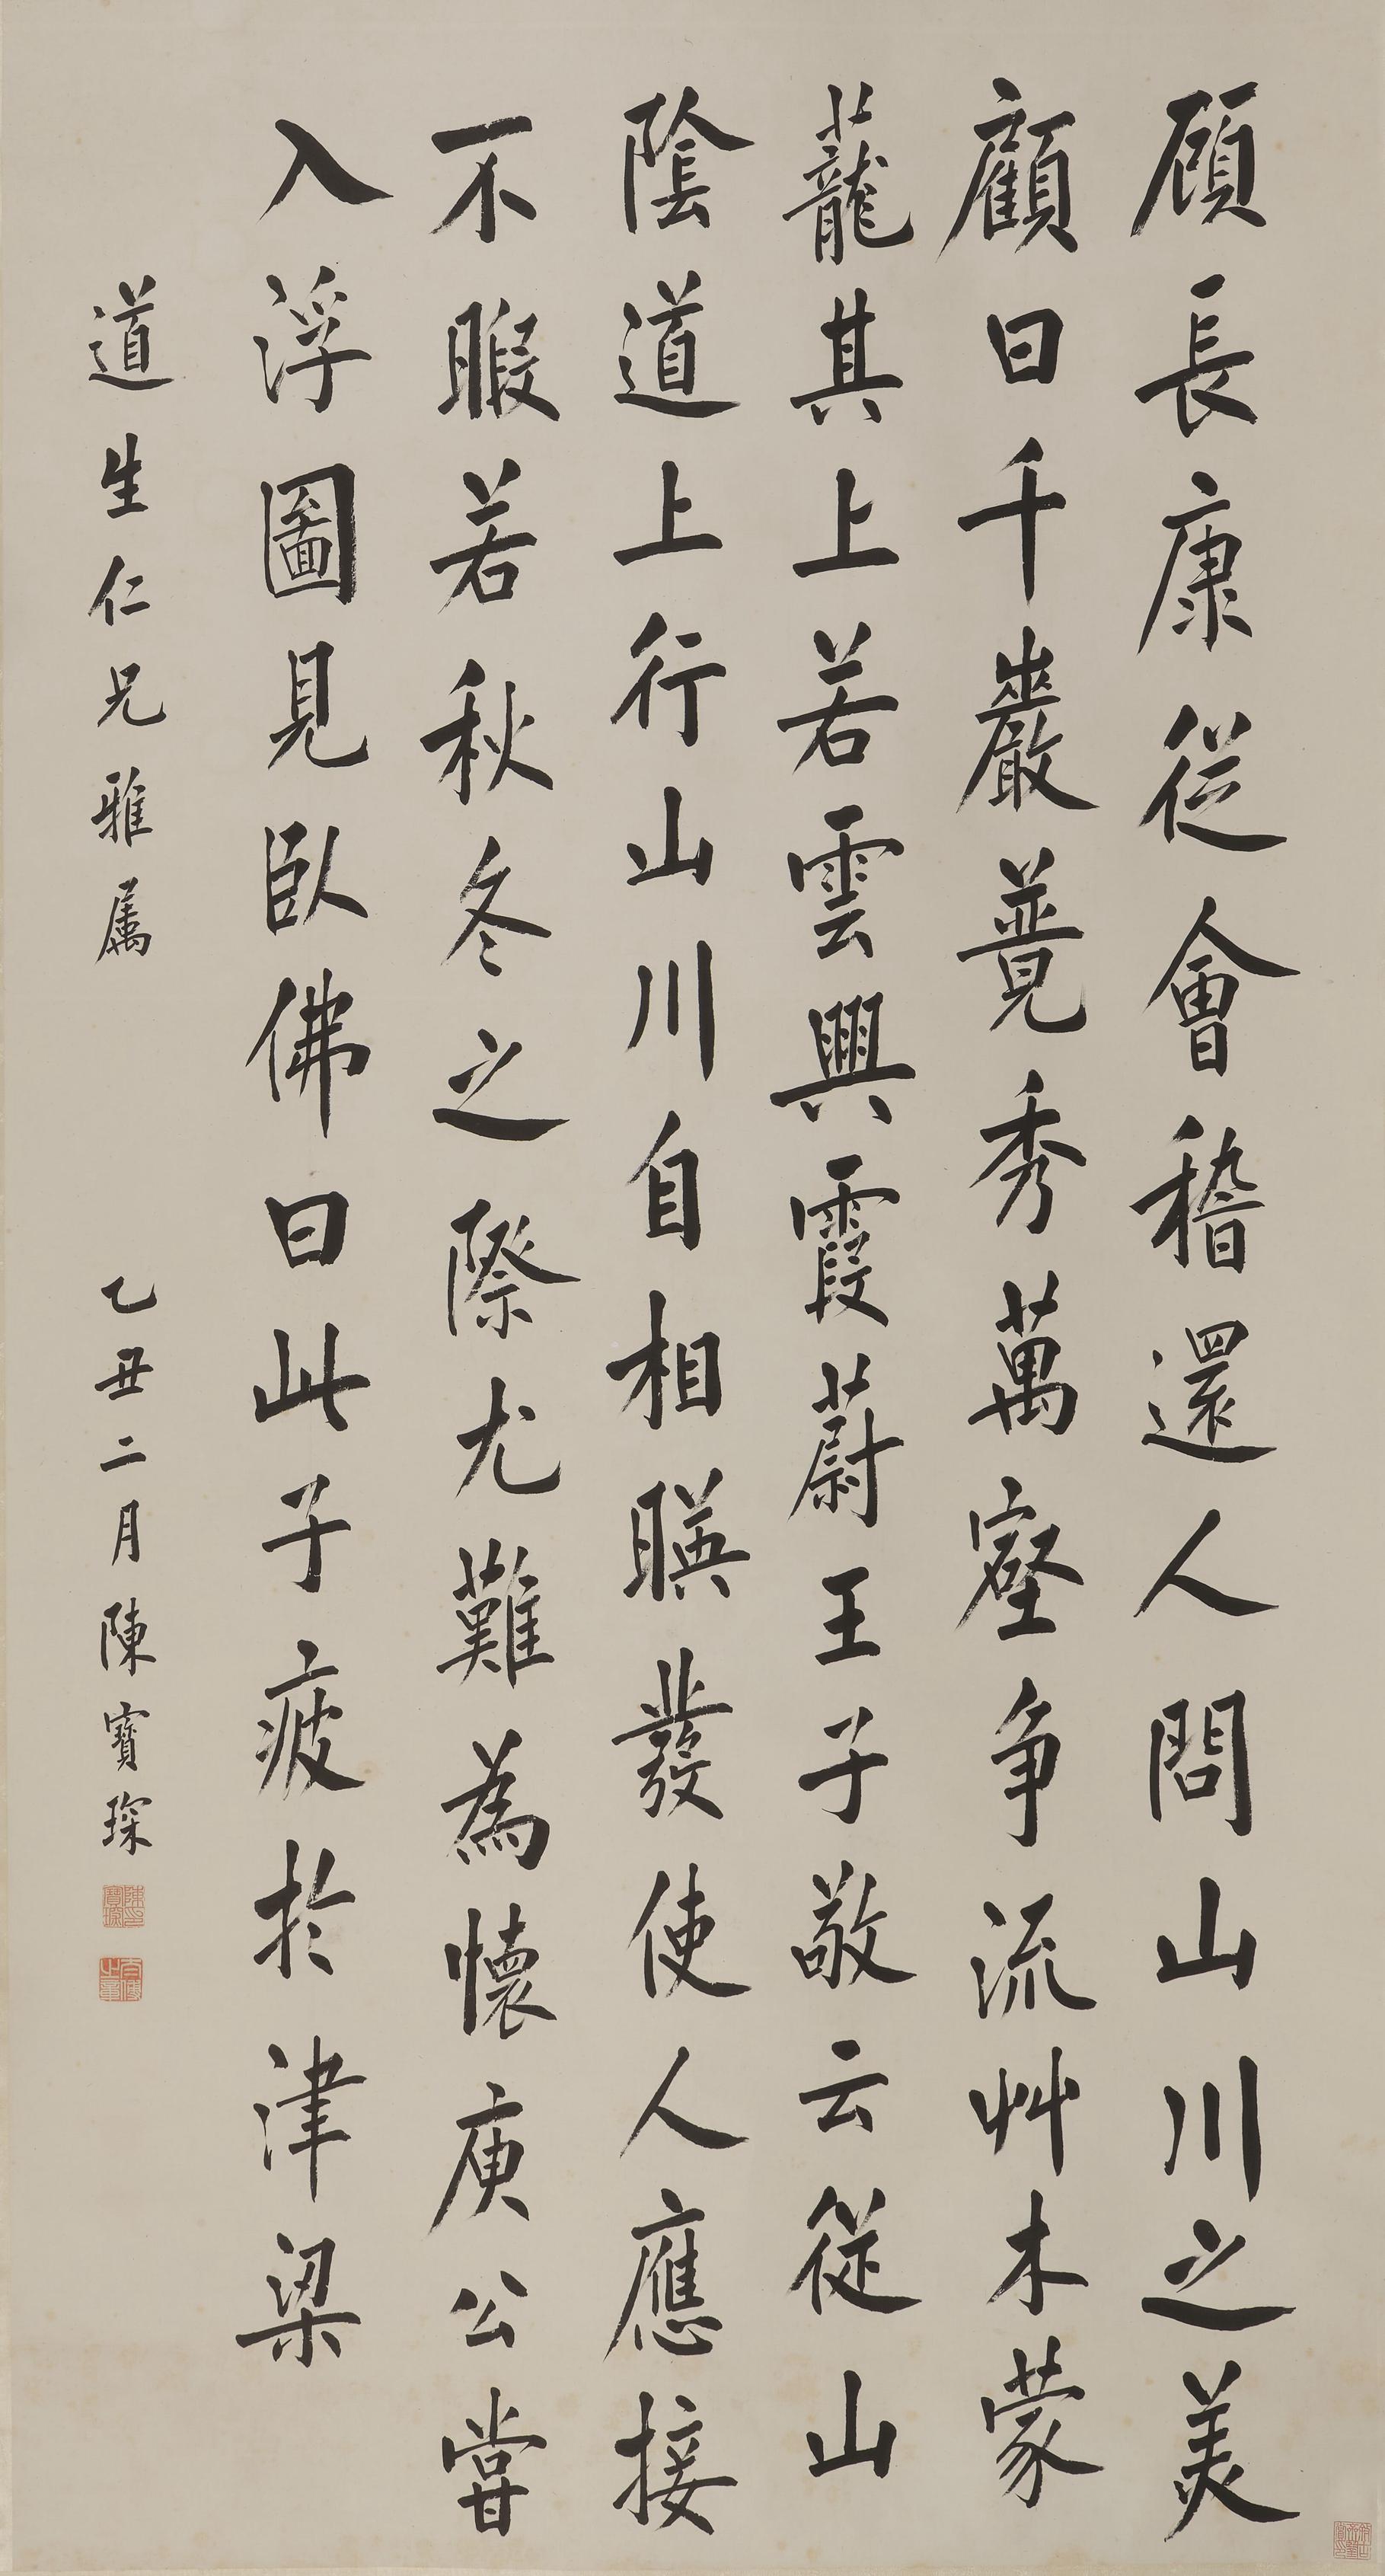 顧長康從會稽還人問山川之美
顧曰千巖競秀萬壑争流艸木蒙
蘢其上若雲興霞蔚王子敬云從山
陰道上行山川自相暎發使人應接
不暇若秋冬之際尤難為懷庾公嘗
入浮圖見臥佛曰此子疲於津梁
道生仁兄雅属
乙丑二月陳寶琛
陳寶琛印
太傅之章